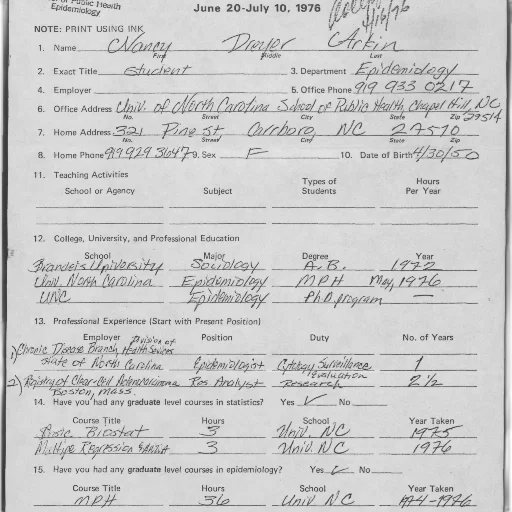 of Public Health
Epidemiology
June 20-July 10, 1976
NOTE: PRINT USING INK
1. Name Nancy Dreyer Arkin
First Middle Last
2. Exact Title student 3. Department Epidemiology
4. Employer 5. Office Phone 919 933 0217
6. Office Address Univ. of North Carolina School of Public Health, Chapel Hill, NC 27514
No. Street City State Zip
7. Home Address 321 Pine St. Carrboro, NC 27510
No. Street City State Zip
8. Home Phone 919 929 3647 9. Sex F 10. Date of Birth 4/30/50
11. Teaching Activities
School or Agency Subject Types of Students Hours Per Year
12. College, University, and Professional Education
School Major Degree Year
Brandeis University Sociology A.B. 1972
Univ. North Carolina Epidemiology MPH May, 1976
UNC Epidemiology PhD program —
13. Professional Experience (Start with Present Position)
Employer Position Duty No. of Years
1) Chronic Disease Branch, Division of Health Services
State of North Carolina Epidemiologist Cytology Surveillance Evaluation 1
2) Registry of Clear-Cell Adenocarcinoma Res Analyst Research 2 1/2
Boston, Mass.
14. Have you had any graduate level courses in statistics? Yes ✓ No
Course Title Hours School Year Taken
Basic Biostat 3 Univ. NC 1975
Multiple Regression 3 Univ. NC 1976
15. Have you had any graduate level courses in epidemiology? Yes ✓ No
Course Title Hours School Year Taken
MPH 36 Univ NC 1974-1976